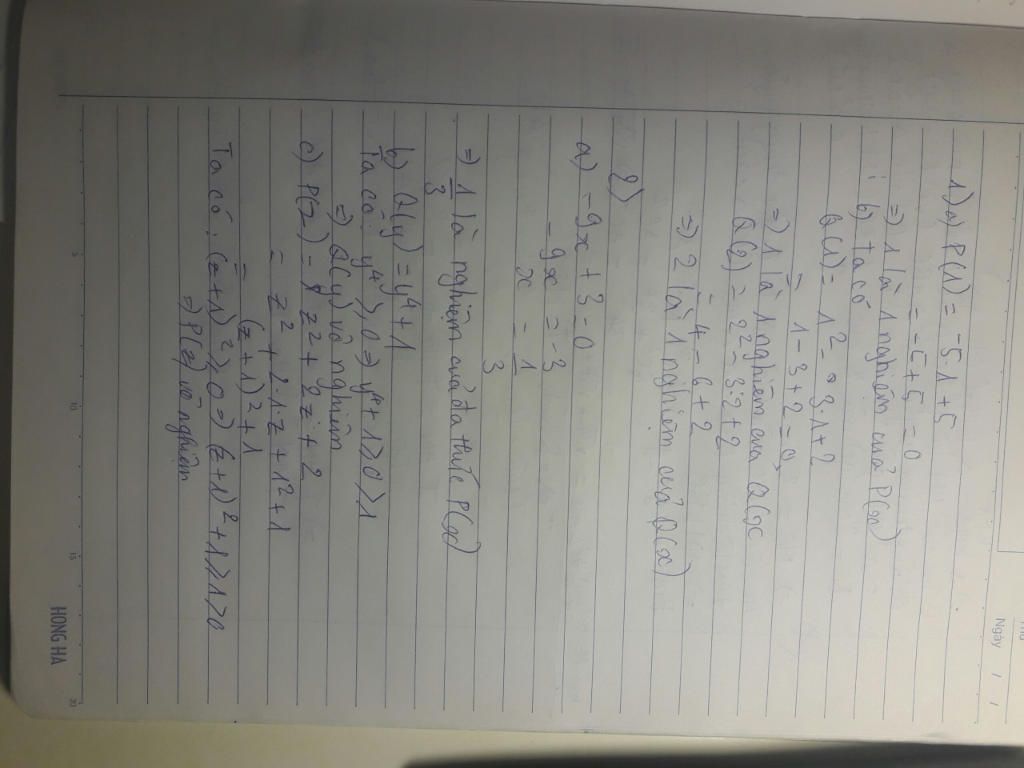 Ngày / /
1) a) P(1) = -5.1 + 5
= -5 + 5 = 0
=) 1 là 1 nghiệm của P(x)
b) ta có
Q(1) = 1² - 3.1 + 2
= 1 - 3 + 2 = 0
=) 1 là 1 nghiệm của Q(x)
Q(2) = 2² - 3.2 + 2
= 4 - 6 + 2
=) 2 là 1 nghiệm của Q(x)
2)
a) -9x + 3 = 0
-9x = -3
x = 1/3
=) 1/3 là nghiệm của đa thức P(x)
b) Q(y) = y⁴ + 1
Ta có: y⁴ ≥ 0 =) y⁴ + 1 ≥ 0 > 1
=) Q(y) vô nghiệm
c) P(z) = z² + 2z + 2
= z² + 2.1.z + 1² + 1
= (z+1)² + 1
Ta có: (z+1)² ≥ 0 =) (z+1)² + 1 ≥ 1 > 0
=) P(z) vô nghiệm
5 10 15 20
HONG HA